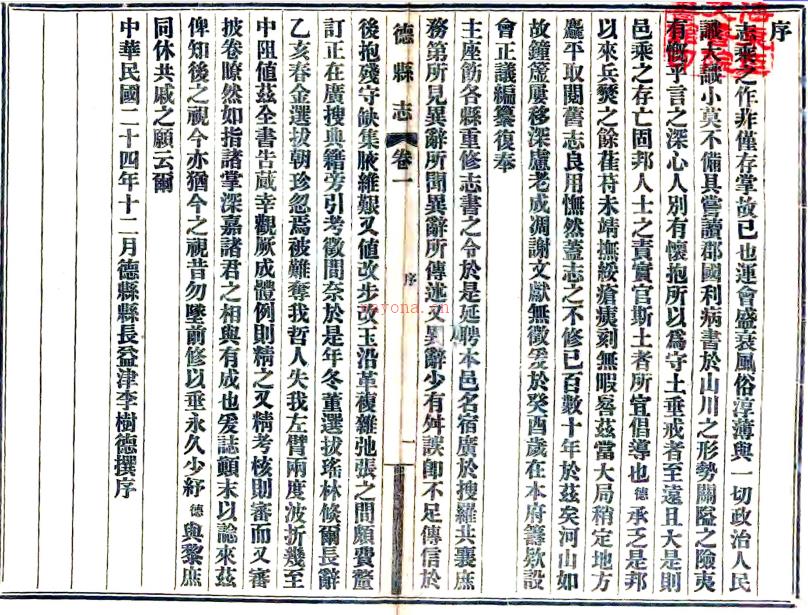 序
志乘之作非僅存掌故已也運會盛衰風俗淳薄與一切政治人民
識大識小莫不備具嘗讀郡國利病書於山川之形勢關隘之險夷
有慨乎言之深心人別有懷抱所以爲守土垂戒者至遠且大是則
邑乘之存亡固邦人士之責實官斯土者所宜倡導也德承乏是邦
以來兵燹之餘萑苻未靖撫綏瘡痍刻無暇晷茲當大局稍定地方
麤平取閱舊志良用憮然蓋志之不修已百數十年於茲矣河山如
故鐘簴屢移深慮老成凋謝文獻無徵爰於癸酉歲在本府籌欵設
會正議編纂復奉
主座飭各縣重修志書之令於是延聘本邑名宿廣於搜羅共襄庶
務第所見異辭所聞異辭所傳述又異辭少有舛誤卽不足傳信於
德縣志 卷一 序 一
後抱殘守缺集腋維艱又值改步改玉沿革複雜弛張之間頗費釐
訂正在廣搜典籍旁引考徵間奈於是年冬董選拔瑤林倐爾長辭
乙亥春金選拔朝珍忽焉被難奪我哲人失我左臂兩度波折幾至
中阻值茲全書告蕆幸觀厥成體例則精之又精考核則審而又審
披卷瞭然如指諸掌深嘉諸君之相與有成也爰誌顚末以諗來茲
俾知後之視今亦猶今之視昔勿墜前修以垂永久少紓德與黎庶
同休共戚之願云爾
中華民國二十四年十二月德縣縣長益津李樹德撰序
yayona.cn